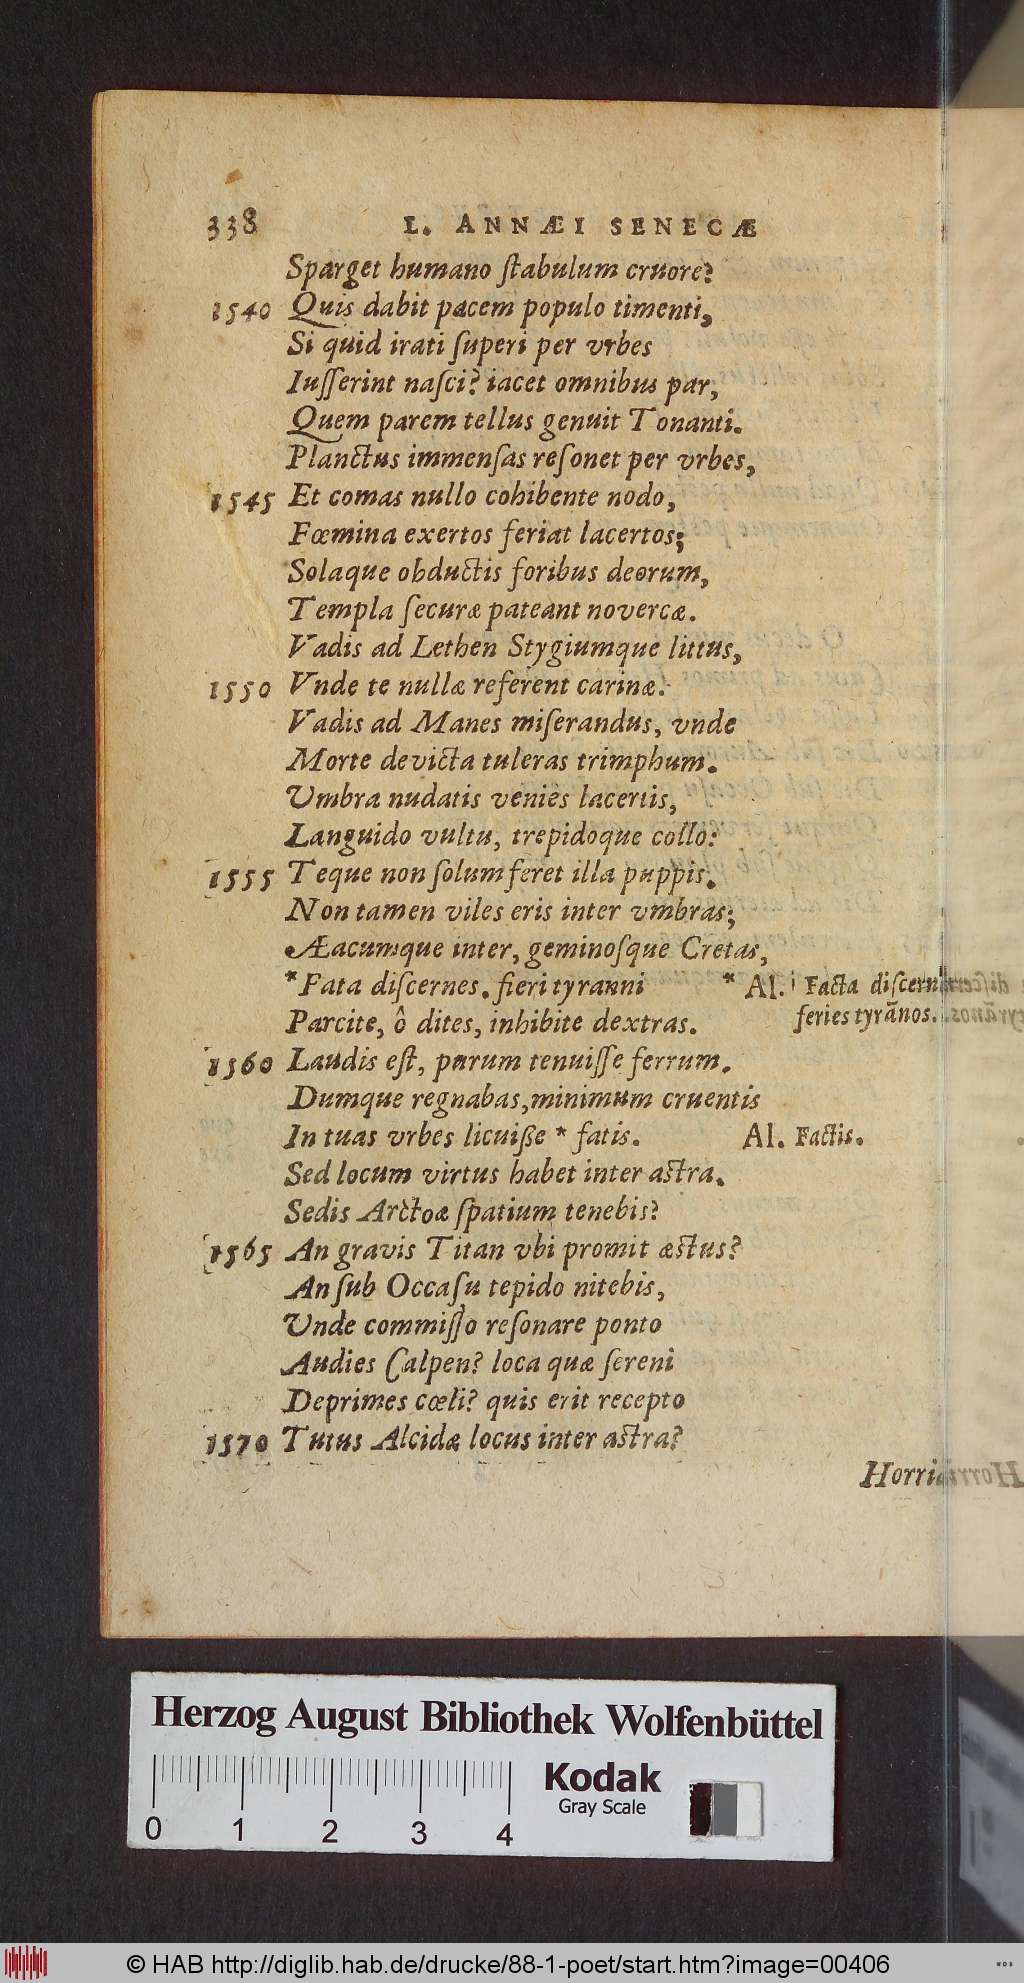 338 L. ANNÆI SENECÆ
Sparget humano ſtabulum cruore?
1540 Quis dabit pacem populo timenti,
Si quid irati ſuperi per vrbes
Iuſſerint naſci? iacet omnibus par,
Quem parem tellus genuit Tonanti.
Planctus immenſas reſonet per vrbes,
1545 Et comas nullo cohibente nodo,
Fœmina exertos feriat lacertos;
Solaque obductis foribus deorum,
Templa ſecuræ pateant novercæ.
Vadis ad Lethen Stygiumque littus,
1550 Vnde te nullæ referent carinæ:
Vadis ad Manes miſerandus, vnde
Morte devicta tuleras trimphum.
Umbra nudatis venies lacertis,
Languido vultu, trepidoque collo:
1555 Teque non ſolum feret illa puppis.
Non tamen viles eris inter vmbras;
Æacumque inter, geminoſque Cretas,
*Fata diſcernes. fieri tyranni * Al. Facta diſcern
Parcite, ô dites, inhibite dextras. feries tyrãnos.
1560 Laudis eſt, purum tenuiſſe ferrum.
Dumque regnabas, minimum cruentis
In tuas vrbes licuiße * fatis. Al. Factis.
Sed locum virtus habet inter aſtra.
Sedis Arctoæ ſpatium tenebis?
1565 An gravis Titan vbi promit æſtus?
An ſub Occaſu tepido nitebis,
Unde commiſſo reſonare ponto
Audies Calpen? loca quæ ſereni
Deprimes cœli? quis erit recepto
1570 Tutus Alcidæ locus inter aſtra?
Horri
Herzog August Bibliothek Wolfenbüttel
Kodak
Gray Scale
0 1 2 3 4
© HAB http://diglib.hab.de/drucke/88-1-poet/start.htm?image=00406